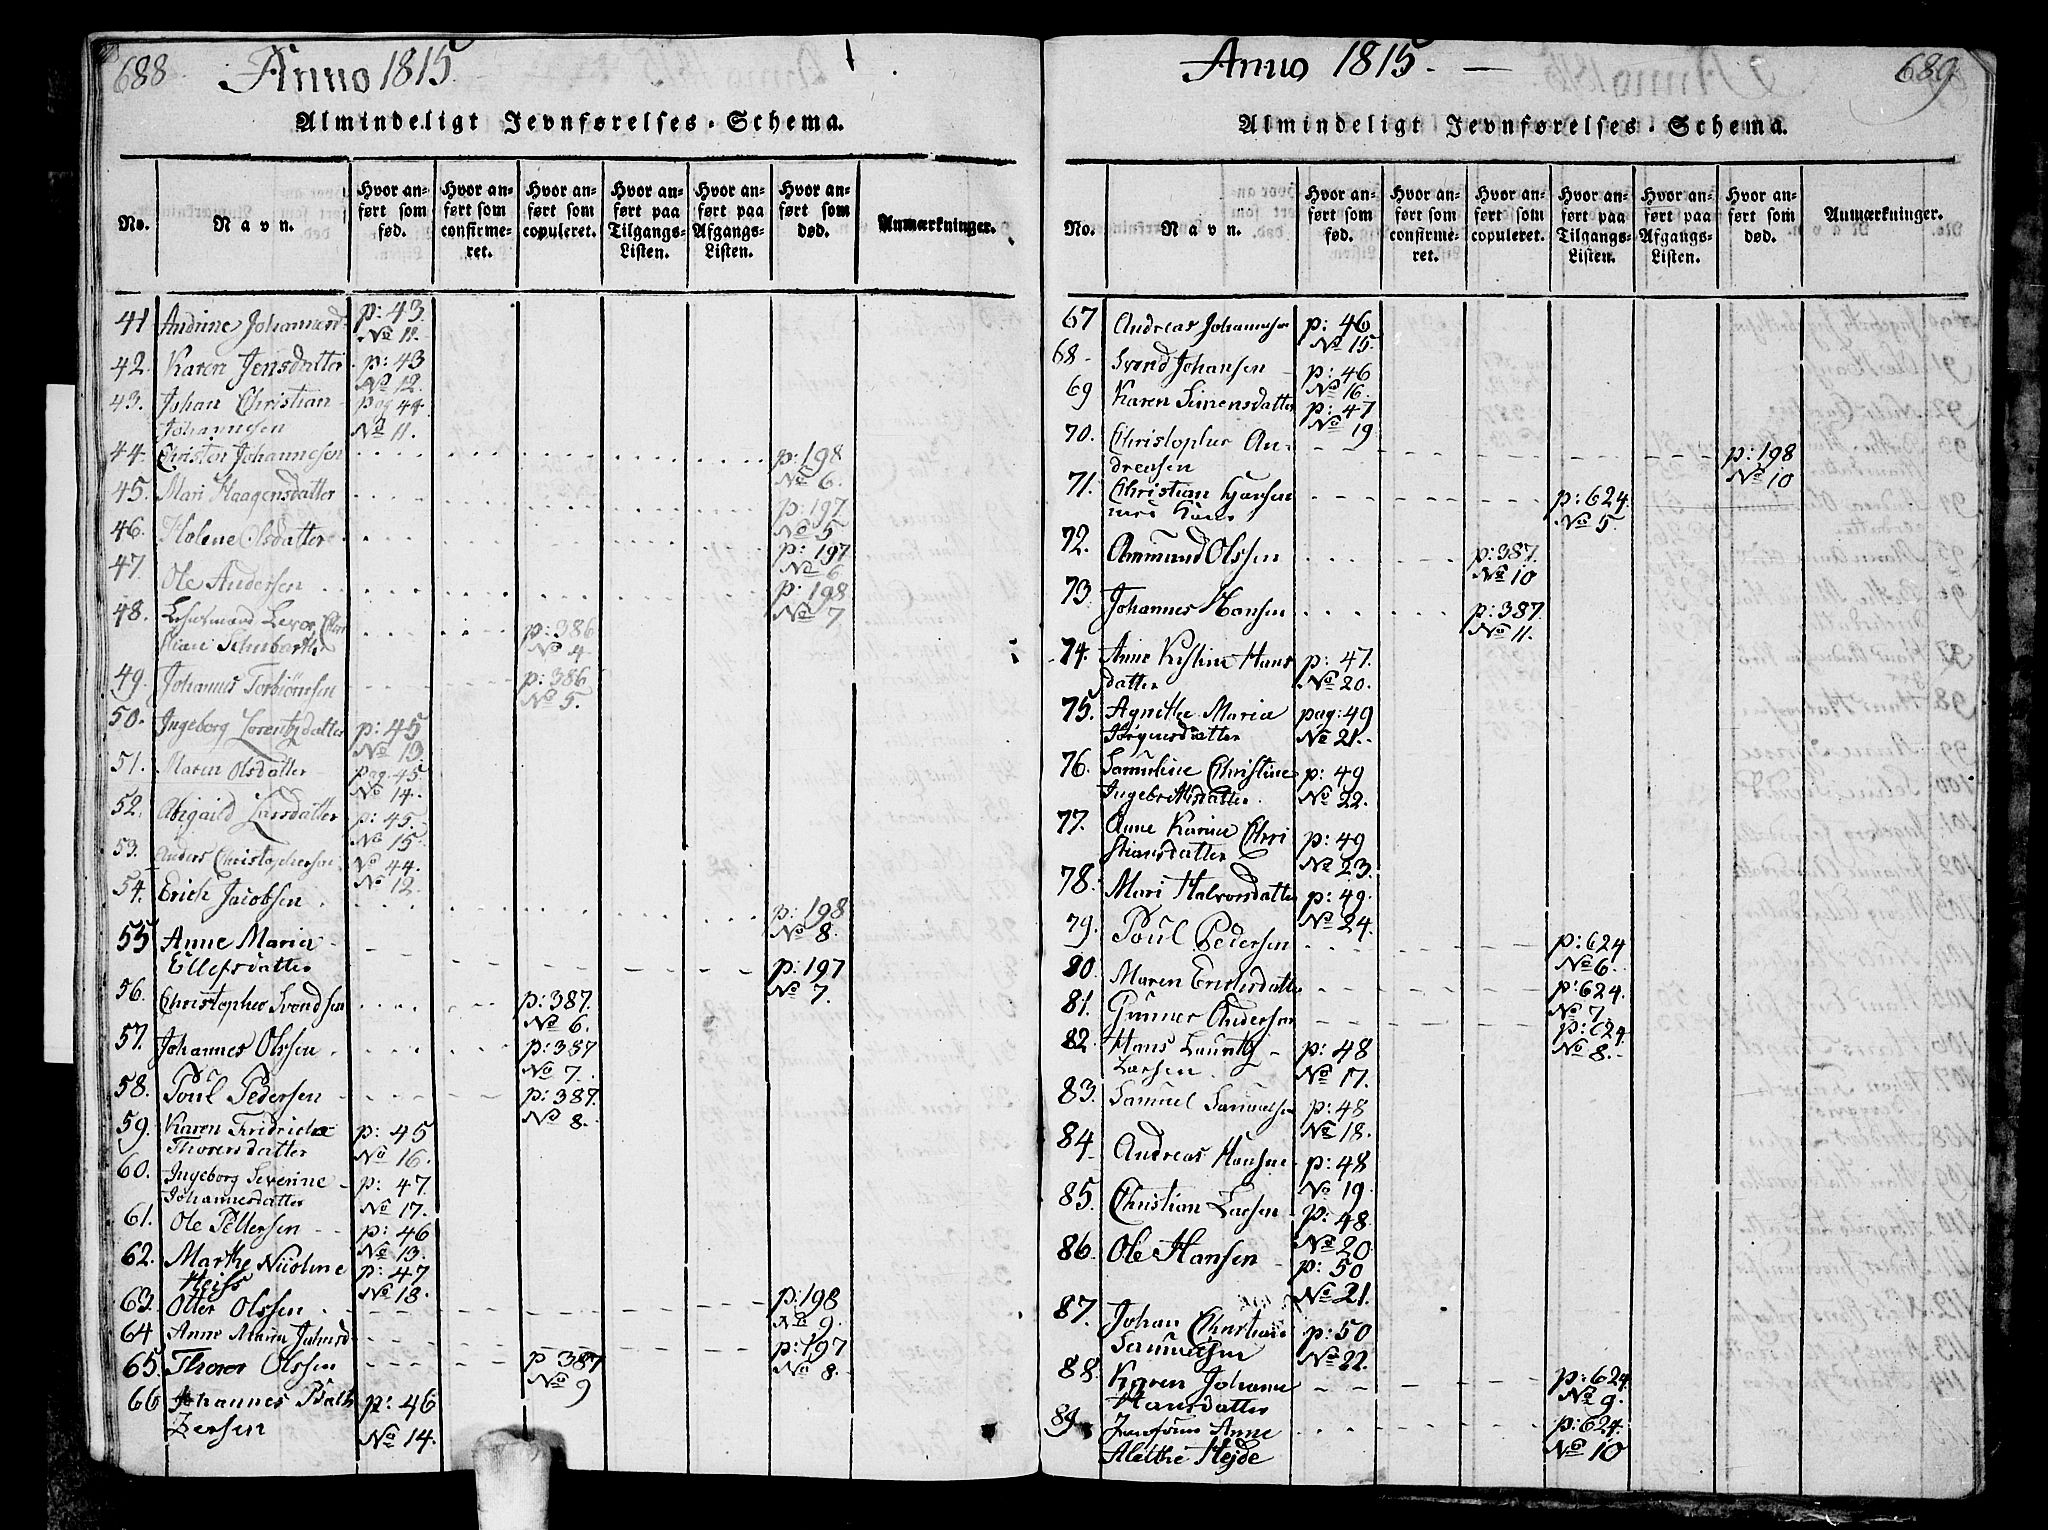 688. Anno 1815.
Almindeligt Jevnførelses-Schema.
No. Navn. Hvor anført som fød. Hvor anført som confirmeret. Hvor anført som copuleret. Hvor anført paa Tilgangs-Listen. Hvor anført paa Afgangs-Listen. Hvor anført som død. Anmærkninger.
41 Andrine Johannesd. p: 43. No 11.
42. Karen Jensdatter p: 43 No 12.
43. Johan Christian Johannesen pag 44. No 11.
44. Christen Johannesen p: 198 No 6.
45. Mari Haagensdatter p: 197 No 5
46. Helene Olsdatter p: 197 No 6
47. Ole Andersen p: 198 No 7
48. p: 386 No 4.
49. Johannes Torbiörnsen p: 386 No 5.
50. Ingeborg Lorentzdatter p: 45 No 13
51. Maren Olsdatter pag: 45 No 14.
52. Abigaild Larsdatter p: 45. No 15.
53. Anders Christophersen No 44. No 12.
54. Erich Jacobsen p: 198 No 8.
55 Anne Maria Ellefsdatter p: 197 No 7.
56. Christopher Svendsen p: 387. No 6.
57. Johannes Olssen p: 387 No 7.
58. Poul Pedersen p: 387. No 8.
59. Karen Fridricha Thorersdatter p: 45 No 16.
60. Ingeborg Severine Johannesdatter p: 47. No 17.
61. Ole Pettersen p: 46 No 13.
62. Marthe Nicoline Heiss p: 47 No 18.
63. Otter Olssen p: 198 No 9.
64 Anne Maria p: 197 No 8.
65. Thorer Olssen p 387 No 9
66 Johannes Balthzersen p: 46 No 14.
Anno 1815. 689
Almindeligt Jevnførelses-Schema.
No. Navn. Hvor anført som fød. Hvor anført som confirmeret. Hvor anført som copuleret. Hvor anført paa Tilgangs-Listen. Hvor anført paa Afgangs-Listen. Hvor anført som død. Anmærkninger.
67 Andreas Johannesen p: 46 No 15.
68 Svend Johansen p: 46 No 16.
69 Karen Simensdatter p: 47 No 19
70. Christopher Andreasen p: 198 No 10
71. Christian Hansen p: 624. No 5.
72. Ammund Olssen p: 387. No 10
73 Johannes Hansen p: 387. No 11.
74. Anne Kistine Hansdatter p: 47. No 20.
75. Agnethe Maria Jörgensdatter pag: 49 No 21.
76. Samueline Christine Ingebrethsdatter p: 49 No 22.
77. Anne Karine Christiansdatter p: 49 No 23.
78. Mari Halvorsdatter p: 49. No 24.
79. Poul Pedersen p: 624 No 6.
80. Maren Erichsdatter p: 624. No 7.
81. Gunner Andersen p: 624 No 8.
82. Hans Lauritz Larsen p: 48 No 17.
83. Samuel Samuelsen p: 48 No 18.
84. Andreas Hansen p: 48 No 19.
85. Christian Larsen p: 48 No 20
86. Ole Hansen p: 50 No 21.
87. Johan Christian Samuelsen p: 50 No 22.
88. Karen Johanne Hansdatter p: 624. No 9.
89. Jomfrue Anne Alethe Hejde p: 624. No 10